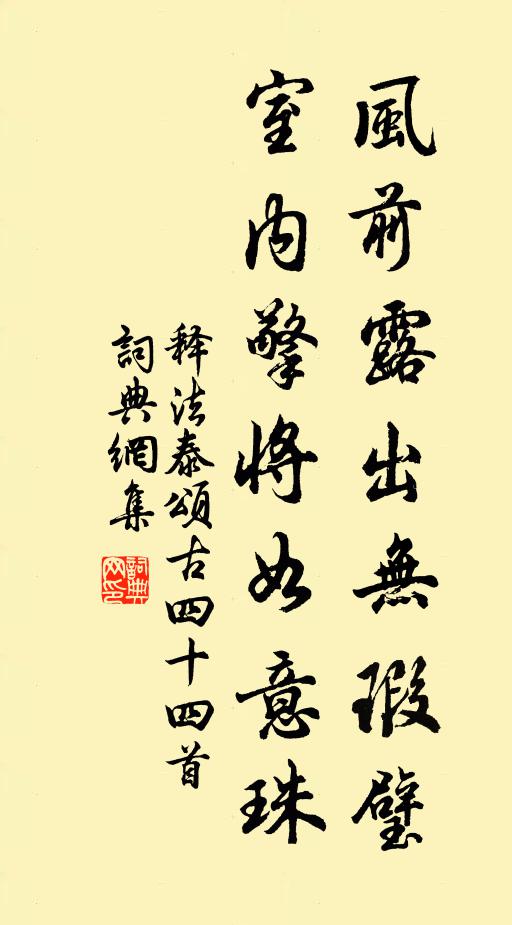 風前露出無瑕璧
室內擎將如意珠
释法泰頌古四十四首
詞典網集
詞典网印